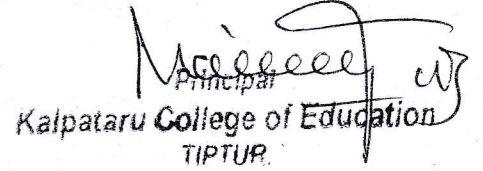 Principal
Kalpataru College of Education
TIPTUR.